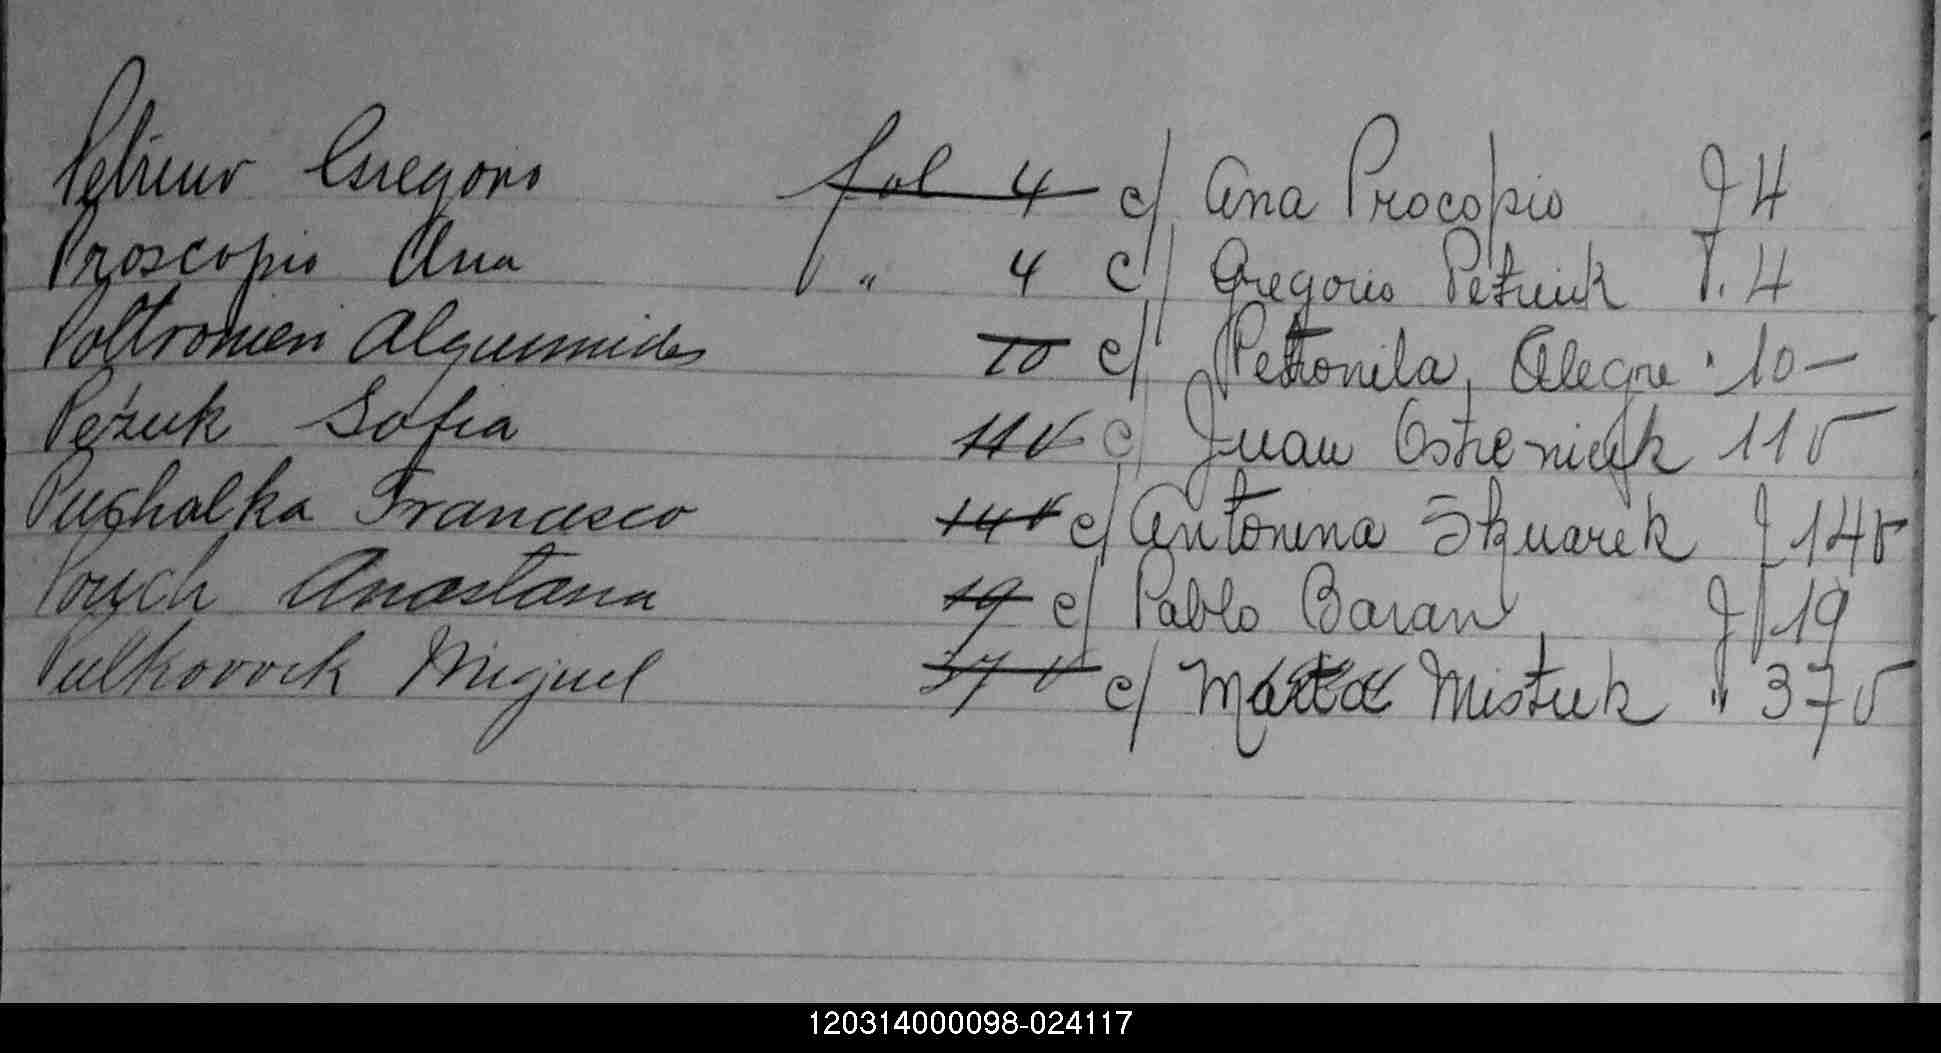 Petriuv Gregorio fol 4 c/ Ana Procopio J 4
Proscopio Ana " 4 c/ Gregorio Petriuk T. 4
Poltronieri Alquimides 10 c/ Petronila Alegre " 10
Pężuk Sofia 11 v c/ Juan Ostrenicyk 11 v
Puchalka Francisco 14 v c/ Antonina Skuarek J 14 v
Anastana 19 c/ Pablo Baran J 19
Pulkovock Miguel 37 v c/ Marta Mistuk " 37 v
120314000098-024117